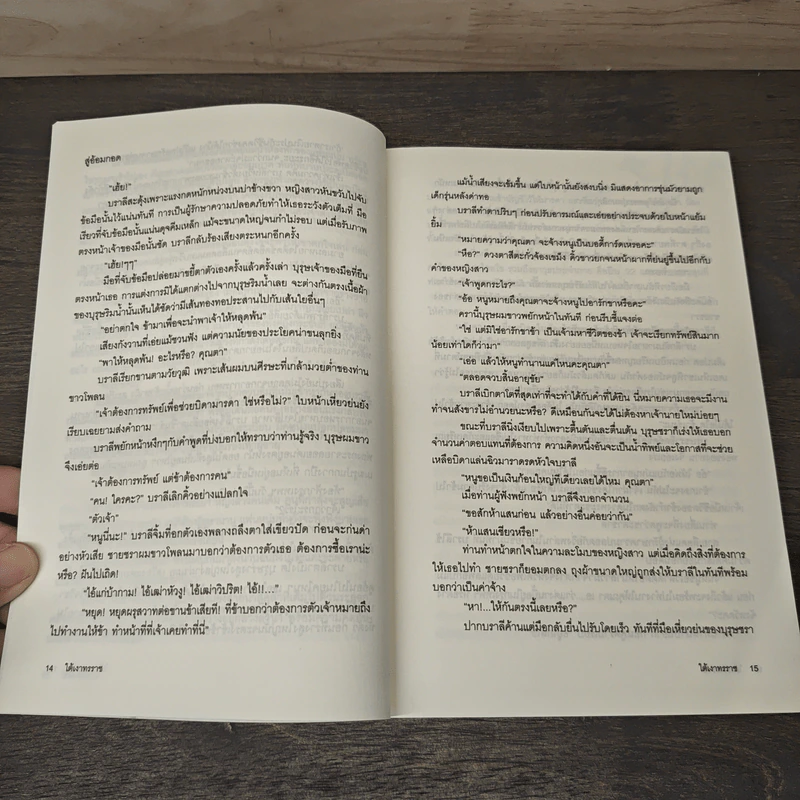 สู่อ้อมกอด
"เฮ้ย!"
บราลีสะดุ้งเพราะแรงกดหนักหน่วงบนบ่าข้างขวา หญิงสาวหันขวับไปจับ
ข้อมือนั้นไว้แน่นทันที การเป็นผู้รักษาความปลอดภัยทำให้เธอระวังตัวเต็มที่ มือ
เรียวที่จับข้อมือนั้นแน่นดุจคีมเหล็ก แม้จะขนาดใหญ่จนกำไม่รอบ แต่เมื่อรับภาพ
ตรงหน้าเจ้าของมือนั้นชัด บราลีกลับร้องเสียงตระหนกอีกครั้ง
"เฮ้ย!ๆๆ"
มือที่จับข้อมือปล่อยมาขยี้ตาตัวเองครั้งแล้วครั้งเล่า บุรุษเจ้าของมือที่ยืน
ตรงหน้าเธอ การแต่งการมิได้แตกต่างไปจากบุรุษริมน้ำเลย จะต่างกันตรงเนื้อผ้า
ของบุรุษริมน้ำนั้นเห็นได้ชัดว่ามีเส้นทองทอประสานไปกับเส้นใยอื่นๆ
"อย่าตกใจ ข้ามาเพื่อจะนำพาเจ้าให้หลุดพ้น"
เสียงกังวานที่เอ่ยแม้ชวนฟัง แต่ความนัยของประโยคน่าขนลุกยิ่ง
"พาให้หลุดพ้น! อะไรหรือ? คุณตา"
บราลีเรียกขานตามวัยวุฒิ เพราะเส้นผมบนศีรษะที่เกล้ามวยต่ำของท่าน
ขาวโพลน
"เจ้าต้องการทรัพย์เพื่อช่วยบิดามารดา ใช่หรือไม่?" ใบหน้าเหี่ยวย่นยัง
เรียบเฉยยามส่งคำถาม
บราลีพยักหน้าหงึกๆกับคำพูดที่บ่งบอกให้ทราบว่าท่านรู้จริง บุรุษผมขาว
จึงเอ่ยต่อ
"เจ้าต้องการทรัพย์ แต่ข้าต้องการคน"
"คน! ใครคะ?" บราลีเลิกคิ้วอย่างแปลกใจ
"ตัวเจ้า"
"หนูนี่นะ!" บราลีจิ้มที่อกตัวเองพลางถลึงตาใส่เขียวปัด ก่อนจะก่นด่า
อย่างหัวเสีย ชายชราผมขาวโพลนมาบอกว่าต้องการตัวเธอ ต้องการซื้อเราน่ะ
หรือ? ฝันไปเถิด!
"ไอ้แก่บ้ากาม! ไอ้เฒ่าหัวงู! ไอ้เฒ่าวิปริต! ไอ้!!..."
"หยุด! หยุดผรุสวาทต่อขานข้าเสียที! ที่ข้าบอกว่าต้องการตัวเจ้าหมายถึง
ไปทำงานให้ข้า ทำหน้าที่ที่เจ้าเคยทำที่นี่"
14 ใต้เงาทรราช
แม้น้ำเสียงจะเข้มขึ้น แต่ใบหน้านั้นยังสงบนิ่ง มิแสดงอาการขุ่นมัวยามถูก
เด็กรุ่นหลังด่าทอ
บราลีทำตาปริบๆ ก่อนปรับอารมณ์และเอ่ยอย่างประจบด้วยใบหน้าแย้ม
ยิ้ม
"หมายความว่าคุณตา จะจ้างหนูเป็นบอดี้การ์ดเหรอคะ"
"หือ?" ดวงตาสีตะกั่วจ้องเขม็ง คิ้วขาวยกจนหน้าผากที่ย่นยู่ขึ้นไปอีกกับ
คำของหญิงสาว
"เจ้าพูดกระไร?"
"อ้อ หนูหมายถึงคุณตาจะจ้างหนูไปอารักขาหรือคะ"
ครานี้บุรุษผมขาวพยักหน้าในทันที ก่อนรีบชี้แจงต่อ
"ใช่ แต่มิใช่อารักขาข้า เป็นเจ้ามหาชีวิตของข้า เจ้าจะเรียกทรัพย์สินมาก
น้อยเท่าใดก็ว่ามา"
"เอ่อ แล้วให้หนูทำนานแค่ไหนคะคุณตา"
"ตลอดจวบสิ้นอายุขัย"
บราลีเบิกตาโตที่สุดเท่าที่จะทำได้กับคำที่ได้ยิน นี่หมายความเธอจะมีงาน
ทำจนสังขารไม่อำนวยนะหรือ? ดีเหมือนกันจะได้ไม่ต้องหาเจ้านายใหม่บ่อยๆ
ขณะที่บราลีนิ่งเงียบไปเพราะตื้นตันและตื่นเต้น บุรุษชราก็เร่งให้เธอบอก
จำนวนค่าตอบแทนที่ต้องการ ความคิดหนึ่งอันจะเป็นน้ำทิพย์และโอกาสที่จะช่วย
เหลือบิดาแล่นฉิวมาราดรดหัวใจบราลี
"หนูขอเป็นเงินก้อนใหญ่ทีเดียวเลยได้ไหม คุณตา"
เมื่อท่านผู้ฟังพยักหน้า บราลีจึงบอกจำนวน
"ขอสักห้าแสนก่อน แล้วอย่างอื่นค่อยว่ากัน"
"ห้าแสนเชียวหรือ!"
ท่านทำหน้าตกใจในความละโมบของหญิงสาว แต่เมื่อคิดถึงสิ่งที่ต้องการ
ให้เธอไปทำ ชายชราก็ยอมตกลง ถุงผ้าขนาดใหญ่ถูกส่งให้บราลีในทันทีพร้อม
บอกว่าเป็นค่าจ้าง
"หา!...ให้กันตรงนี้เลยหรือ?"
ปากบราลีค้านแต่มือกลับยื่นไปรับโดยเร็ว ทันทีที่มือเหี่ยวย่นของบุรุษชรา
ใต้เงาทรราช 15